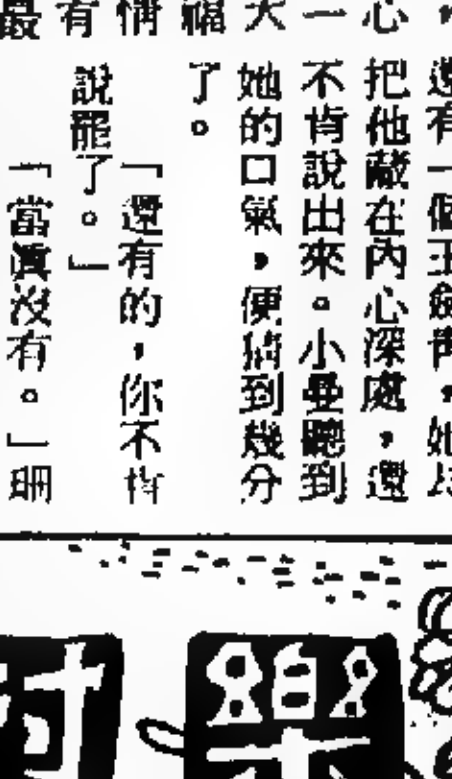 心
一
大
福
情
有
最
還有一個王劍青，她
把他藏在內心深處，還
不肯說出來。小曼聽到
她的口氣，便猜到幾分
了。
「還有的，你不肯
說罷了。」
「當真沒有。」珊
樂